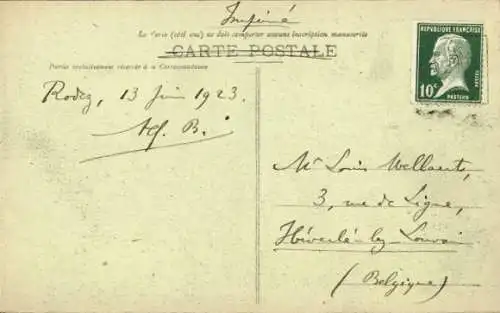 Imprimé
Le Verso (côté vue) ne doit comporter aucune inscription manuscrite
CARTE POSTALE
Partie exclusivement réservée à la Correspondance
RÉPUBLIQUE FRANÇAISE
10c
POSTES
PASTEUR
Rodez, 13 Juin 1923.
Alf. B.
Mr Louis Wellaerts,
3, rue de Ligne,
Héverlé-lez-Louvain
(Belgique)